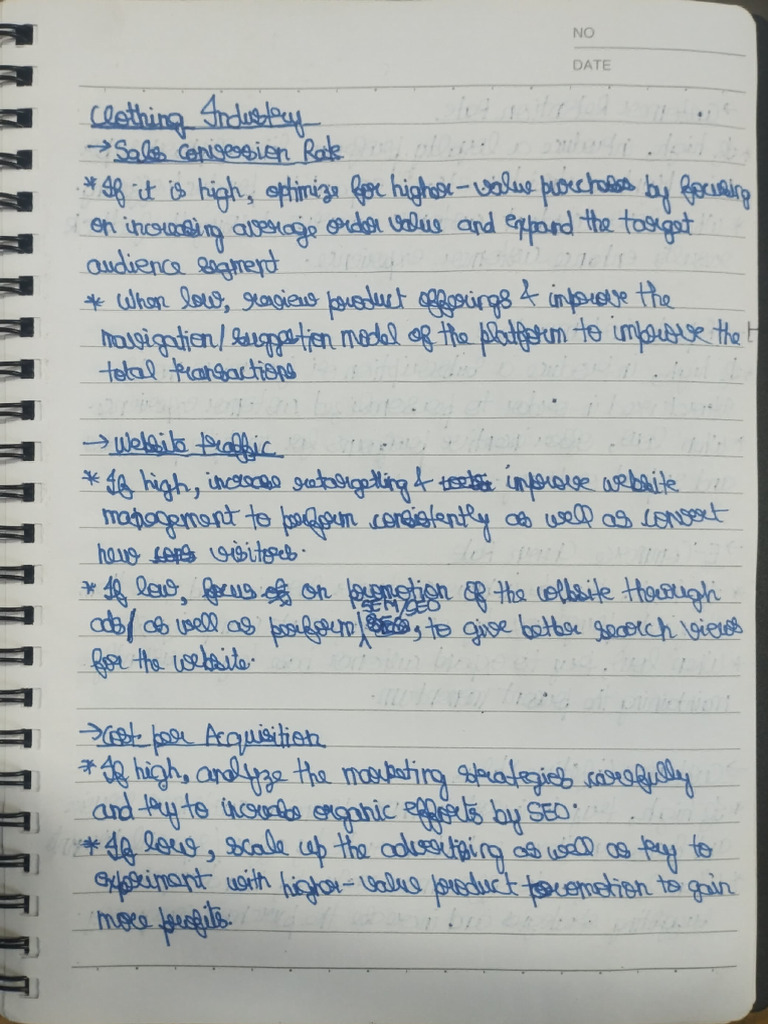 NO
DATE
Clothing Industry
→ Sales Conversion Rate
* If it is high, optimize for higher-value purchases by focusing
on increasing average order value and expand the target
audience segment
* When low, review product offerings & improve the
navigation/suggestion model of the platform to improve the
total transactions
→ Website traffic
* If high, increase retargetting & improve website
management to perform consistently as well as convert
new visitors.
* If low, focus on promotion of the website through
SEM/SEO
ads/ as well as perform, to give better search views
for the website.
→ Cost per Acquisition
* If high, analyze the marketing strategies carefully
and try to increase organic efforts by SEO.
* If low, scale up the advertising as well as try to
experiment with higher-value product promotion to gain
more profits.